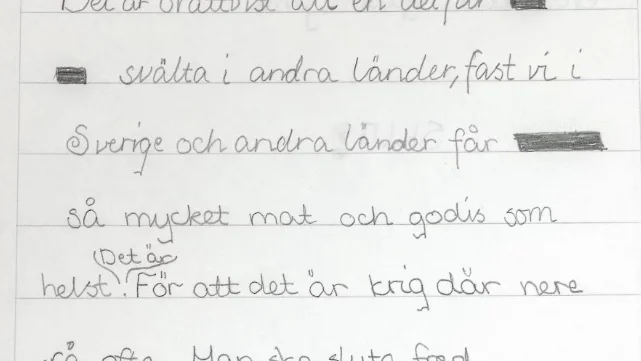 Det är orättvist att en del får
svälta i andra länder, fast vi i
Sverige och andra länder får
så mycket mat och godis som
Det är
helst. För att det är krig där nere
så ofta. Man ska sluta fred